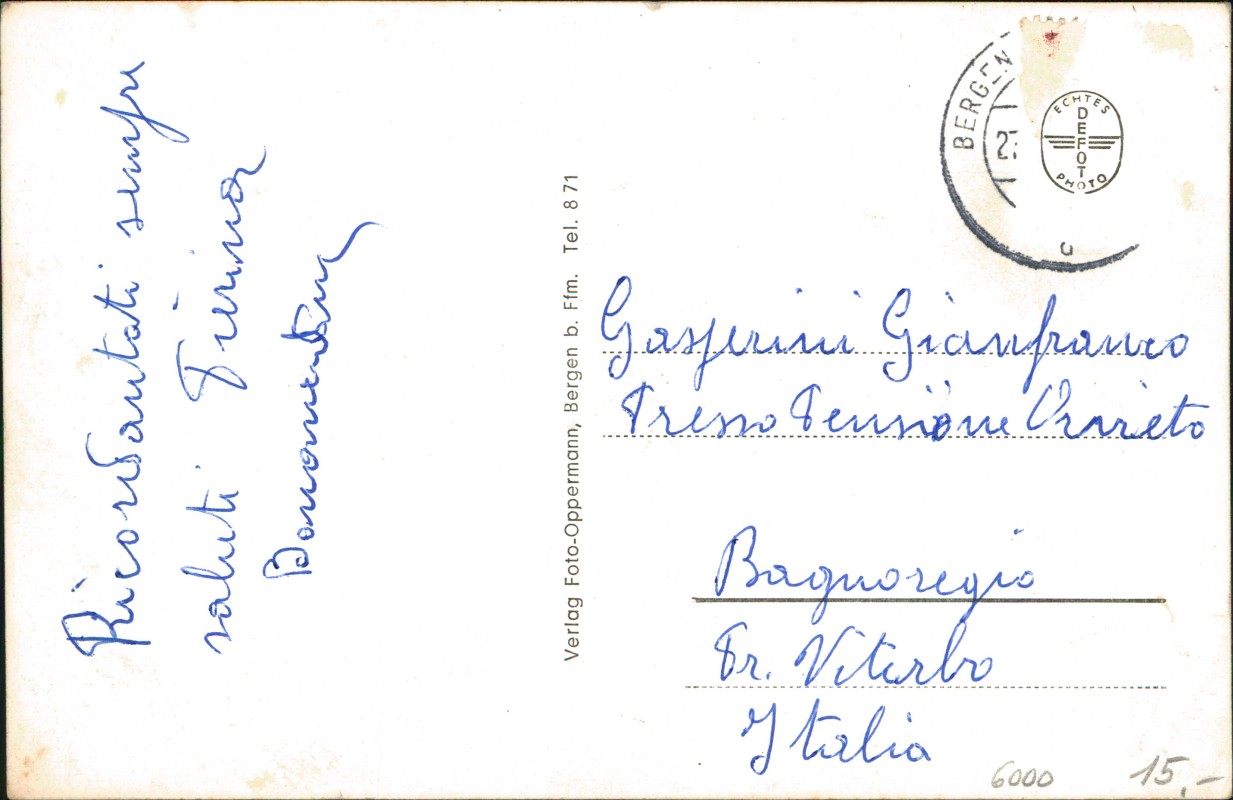 Ricordantati sempre
saluti Pierina
Verlag Foto-Oppermann, Bergen b. Ffm. Tel. 8 71
BERGEN
ECHTES
DEFOT
PHOTO
u
Gasperini Gianfranco
Presso Pensione Orvieto
Bagnoregio
Pr. Viterbo
Italia
6000 15,-